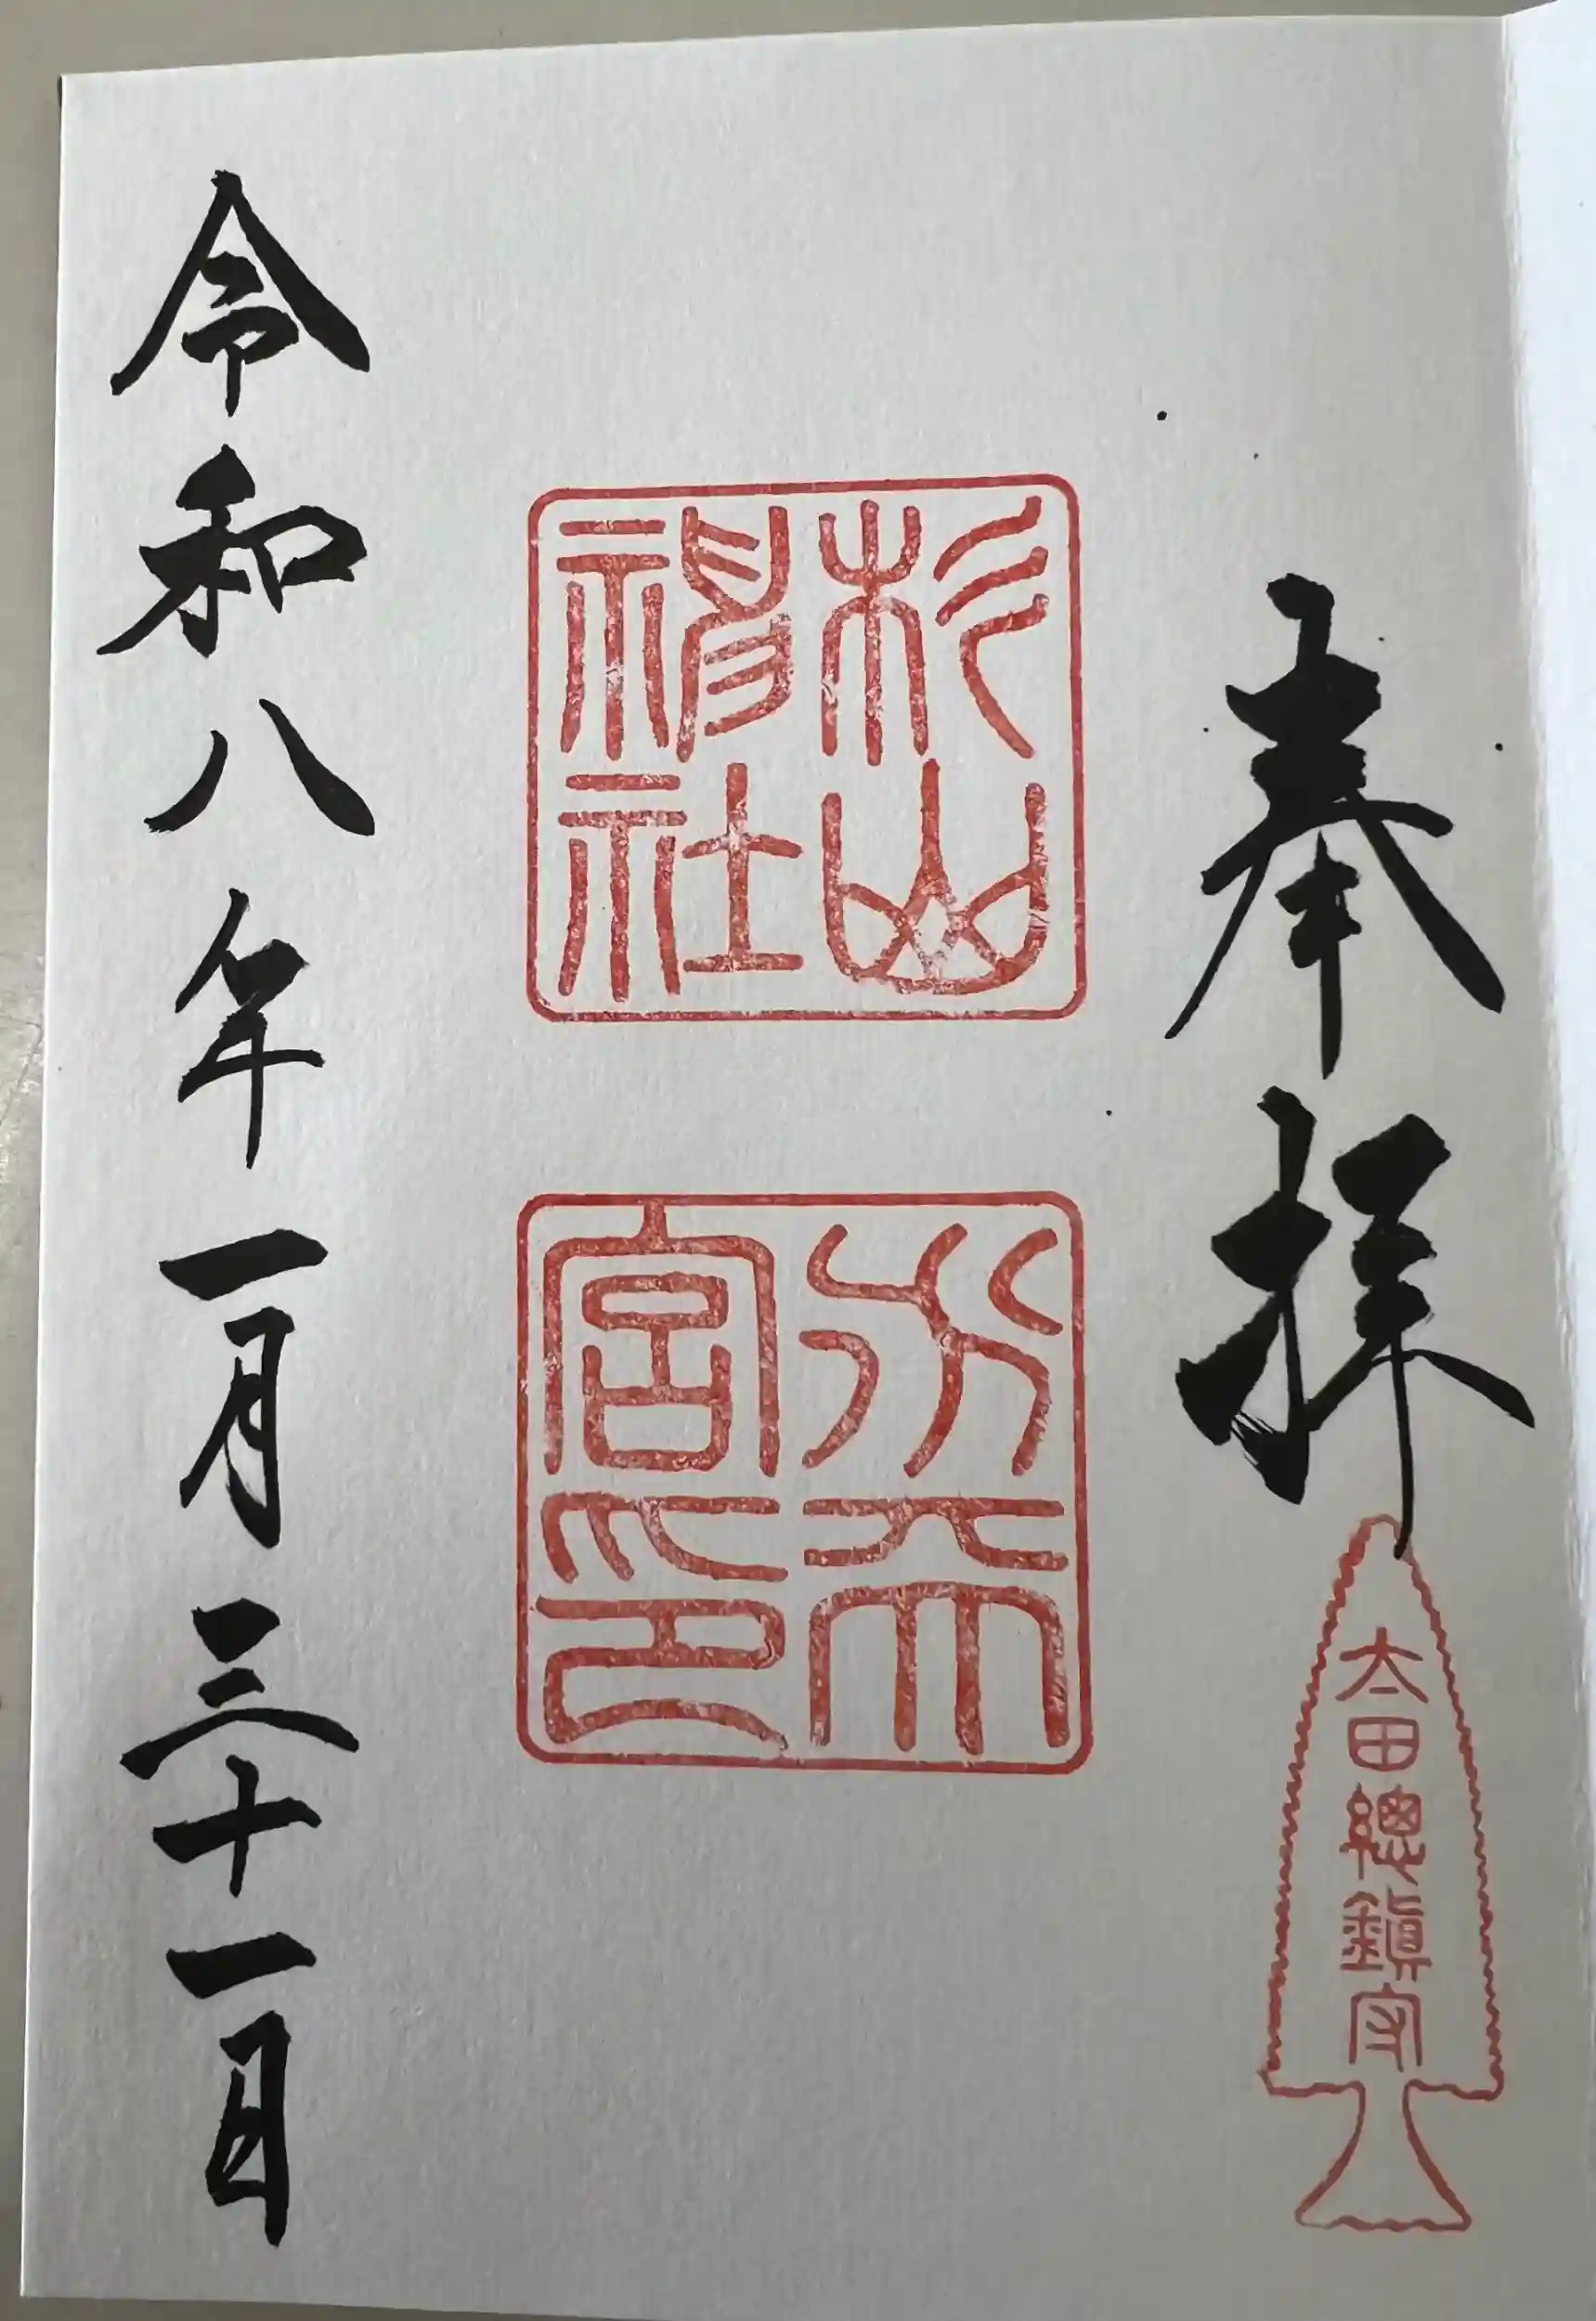 奉拝
太田總鎮守
杉山
神社
水天
宮印
令和八年一月三十一日